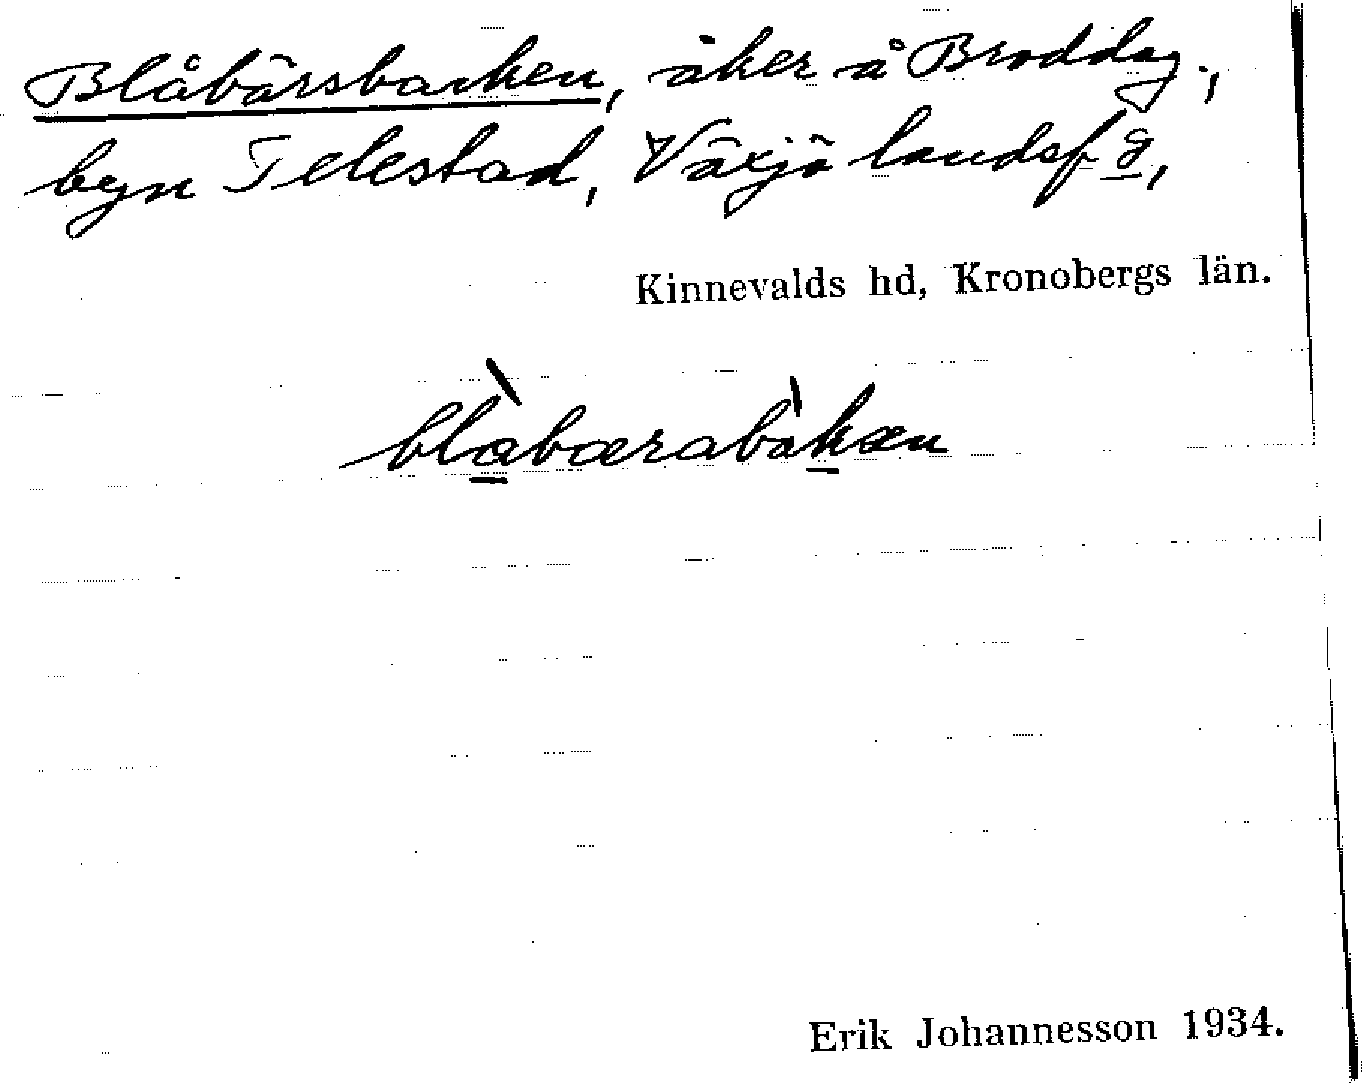 Blåbärsbacken, åker å Broddag.,
byn Telestad, Växjö landsf g,
Kinnevalds hd, Kronobergs län.
blàbærabàkæn
Erik Johannesson 1934.